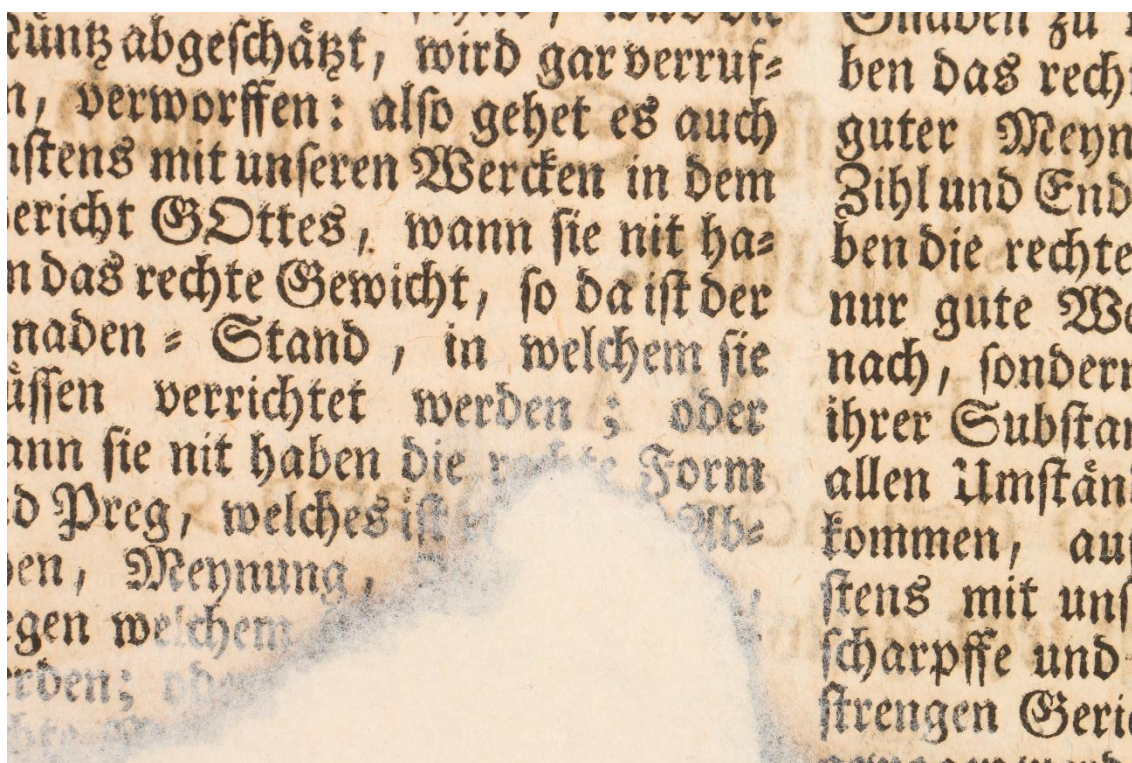 Müntz abgeschätzt, wird gar verruf⸗
n, verworffen: also gehet es auch
nstens mit unseren Wercken in dem
ericht GOttes, wann sie nit ha⸗
n das rechte Gewicht, so da ist der
naden⸗Stand, in welchem sie
üssen verrichtet werden; oder
ann sie nit haben die rechte Form
d Preg, welches ist Ab⸗
en, Meynung,
egen welchem
rden; oder
Gnaden zu
ben das recht
guter Meyn
Zihl und End
ben die rechte
nur gute We
nach, sondern
ihrer Substan
allen Umstän
kommen, auf
stens mit uns
scharpffe und
strengen Geri